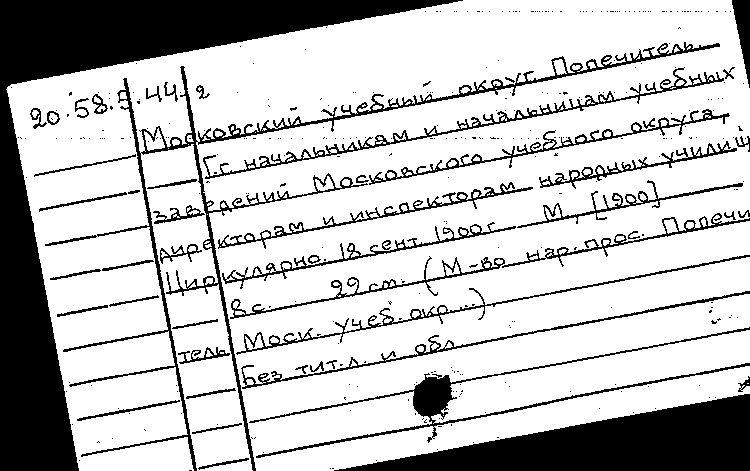 20.58.5.44.2
Московский учебный округ. Попечитель.
Г.г. начальникам и начальницам учебных
заведений Московского учебного округа,
директорам и инспекторам народных училищ
Циркулярно. 18 сент. 1900 г. М., [1900]
8 с. 22 см. (М-во нар. прос. Попечи
тель Моск. учеб. окр...).
Без тит. л. и обл